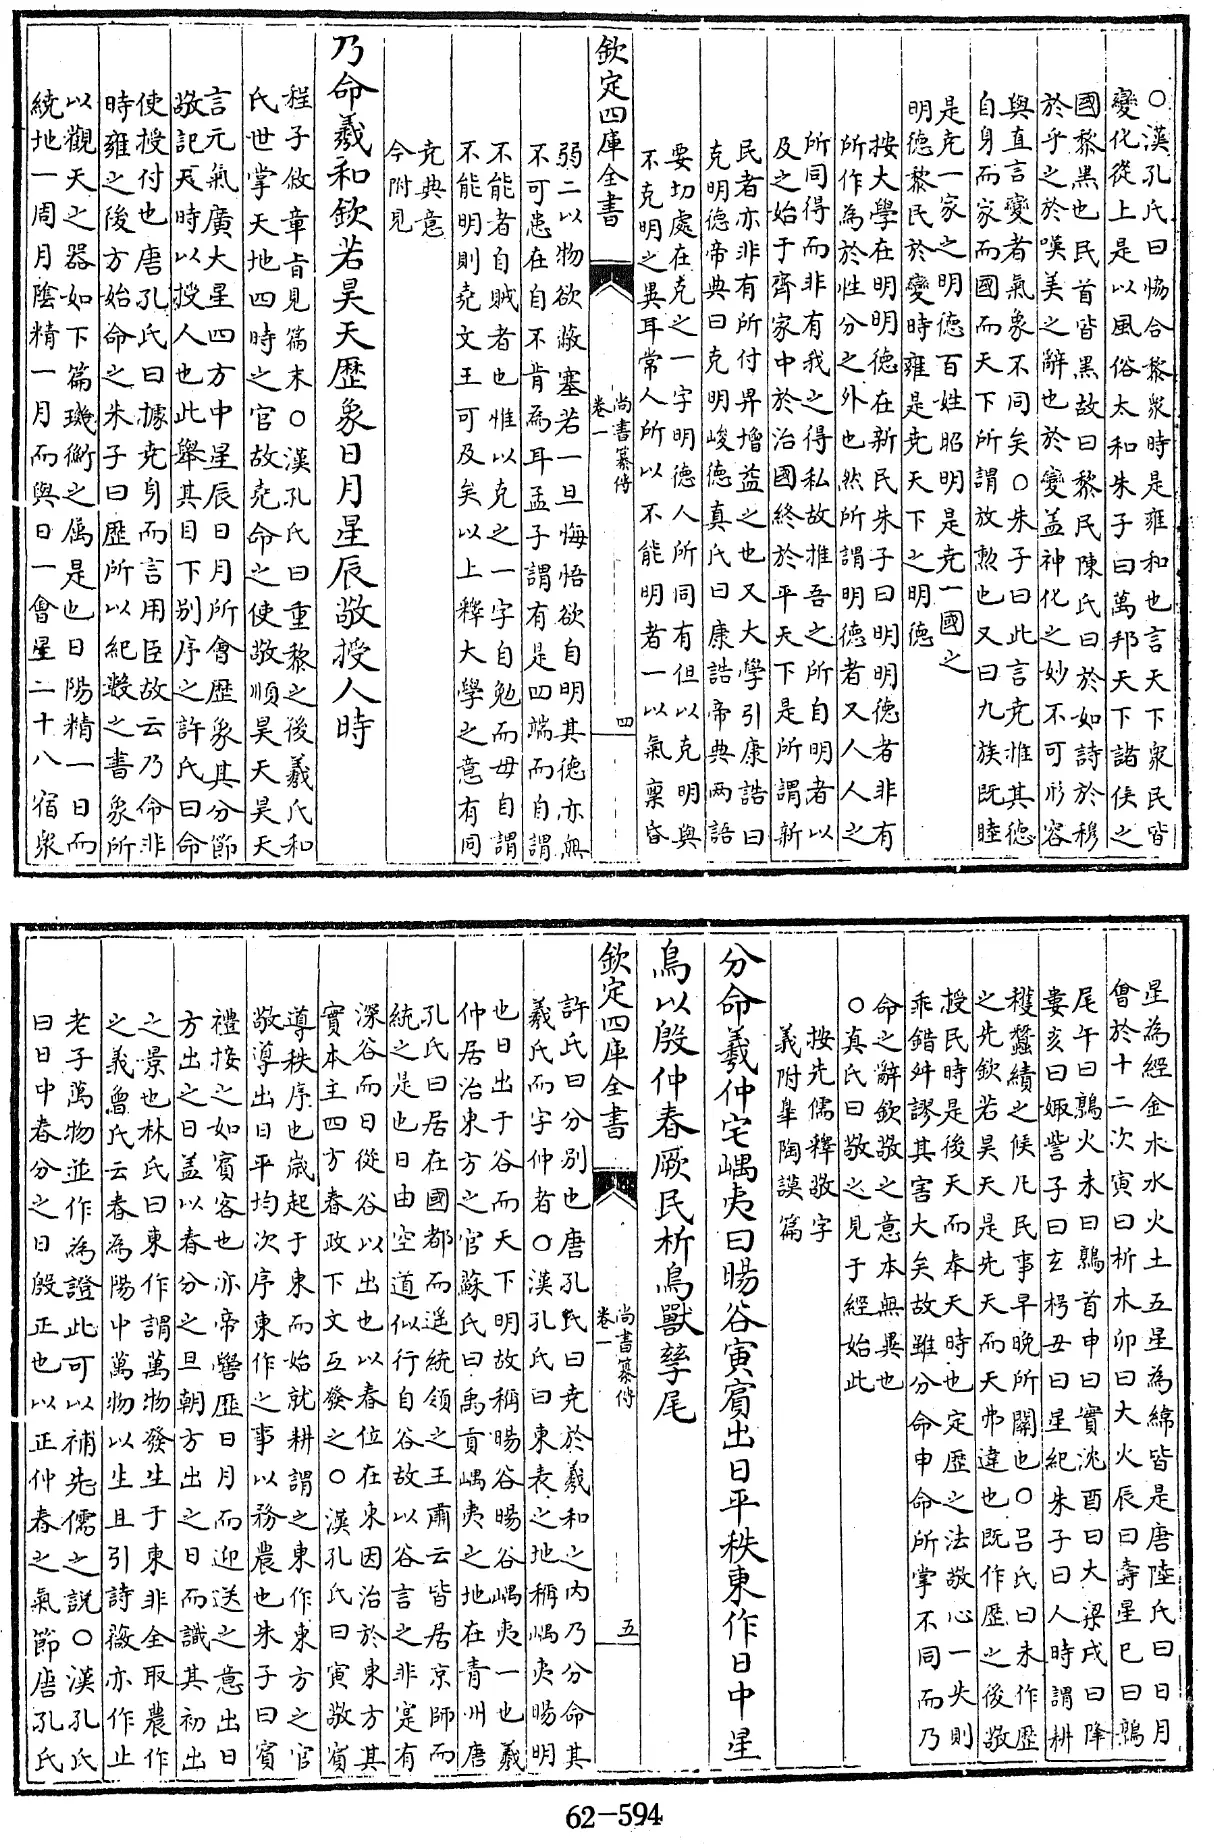 ○漢孔氏曰恊合黎衆時是雍和也言天下衆民皆
變化從上是以風俗太和朱子曰萬邦天下諸侯之
國黎黑也民首皆黑故曰黎民陳氏曰於如詩於穆
於乎之於嘆美之辭也於變盖神化之妙不可形容
與直言變者氣象不同矣○朱子曰此言堯惟其德
自身而家而國而天下所謂放勲也又曰九族既睦
是堯一家之明德百姓昭明是堯一國之
明德黎民於變時雍是堯天下之明德
按大學在明明德在新民朱子曰明明德者非有
所作為於性分之外也然所謂明德者又人人之
所同得而非有我之得私故推吾之所自明者以
及之始于齊家中於治國終於平天下是所謂新
民者亦非有所付畀增益之也又大學引康誥曰
克明德帝典曰克明峻德真氏曰康誥帝典两語
要切處在克之一字明德人所同有但以克明與
不克明之異耳常人所以不能明者一以氣稟昏
欽定四庫全書
尚書纂傳
卷一
四
弱二以物欲蔽塞若一旦悔悟欲自明其德亦無
不可患在自不肯為耳孟子謂有是四端而自謂
不能者自賊者也惟以克之一字自勉而毋自謂
不能明則堯文王可及矣以上釋大學之意有同
堯典意
今附見
乃命羲和欽若昊天歴象日月星辰敬授人時
程子倣章㫖見篇末○漢孔氏曰重黎之後羲氏和
氏世掌天地四時之官故堯命之使敬順昊天昊天
言元氣廣大星四方中星辰日月所會歴象其分節
敬記天時以授人也此舉其目下别序之許氏曰命
使授付也唐孔氏曰據堯身而言用臣故云乃命非
時雍之後方始命之朱子曰歴所以紀數之書象所
以觀天之器如下篇璣衡之屬是也日陽精一日而
繞地一周月陰精一月而與日一會星二十八宿衆
星為經金木水火土五星為緯皆是唐陸氏曰日月
會於十二次寅曰析木卯曰大火辰曰壽星巳曰鶉
尾午曰鶉火未曰鶉首申曰實沈酉曰大梁戌曰降
婁亥曰娵訾子曰玄枵丑曰星紀朱子曰人時謂耕
穫蠶績之候凡民事早晚所關也○吕氏曰未作歴
之先欽若昊天是先天而天弗違也既作歴之後敬
授民時是後天而奉天時也定歴之法敬心一失則
乖錯舛謬其害大矣故雖分命申命所掌不同而乃
命之辭欽敬之意本無異也
○真氏曰敬之見于經始此
按先儒釋敬字
義附臯陶謨篇
分命羲仲宅嵎夷曰暘谷寅賔出日平秩東作日中星
鳥以殷仲春厥民析鳥獸孳尾
欽定四庫全書
尚書纂傳
卷一
五
許氏曰分别也唐孔氏曰堯於羲和之内乃分命其
羲氏而字仲者○漢孔氏曰東表之地稱嵎夷暘明
也日出于谷而天下明故稱暘谷暘谷嵎夷一也羲
仲居治東方之官蘇氏曰禹貢嵎夷之地在青州唐
孔氏曰居在國都而遥統領之王肅云皆居京師而
統之是也日由空道似行自谷故以谷言之非寔有
深谷而日從谷以出也以春位在東因治於東方其
實本主四方春政下文互發之○漢孔氏曰寅敬賔
導秩序也嵗起于東而始就耕謂之東作東方之官
敬導出日平均次序東作之事以務農也朱子曰賔
禮接之如賔客也亦帝嚳歴日月而迎送之意出日
方出之日盖以春分之旦朝方出之日而識其初出
之景也林氏曰東作謂萬物發生于東非全取農作
之義曾氏云春為陽中萬物以生且引詩薇亦作止
老子萬物並作為證此可以補先儒之說○漢孔氏
曰日中春分之日殷正也以正仲春之氣節唐孔氏
62-594